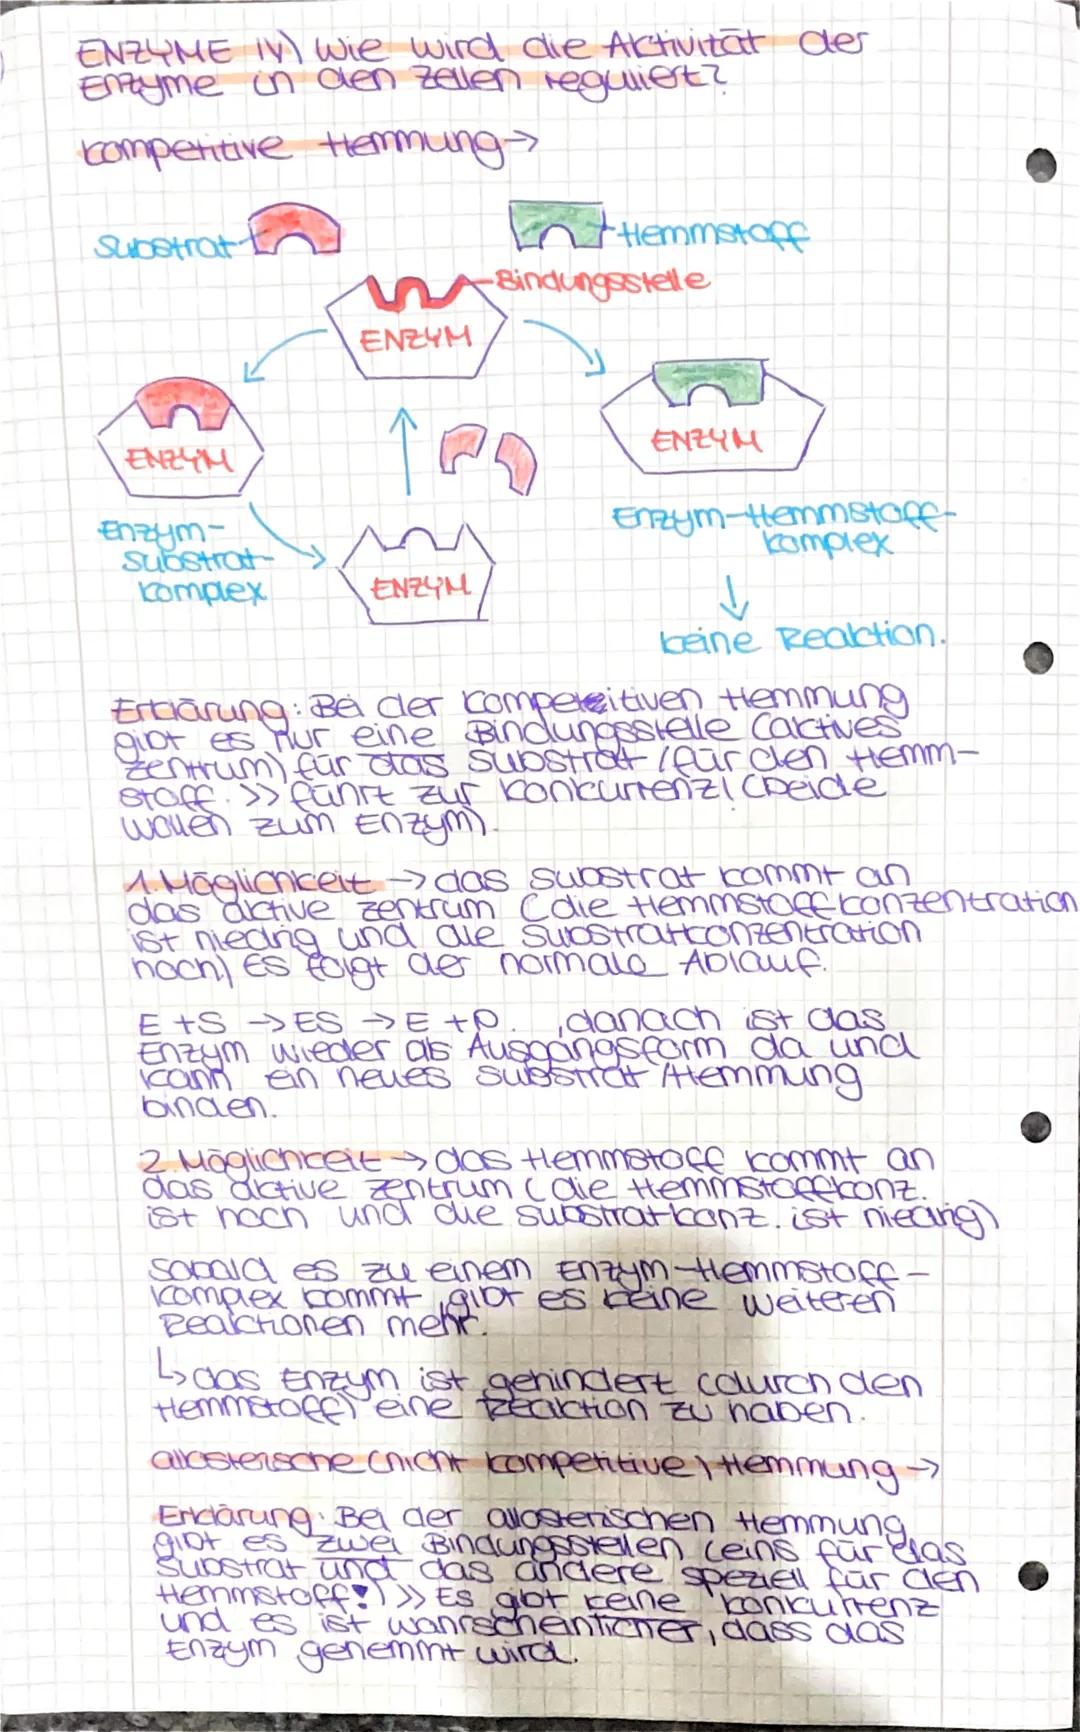 ENZYME IV) Wie wird die Aktivität der
Enzyme in den Zellen reguliert?
kompetitive Hemmung→
Substrat
Hemmstoff
Bindungsstelle
ENZYM
ENZYM
ENZYM
Enzym-
Substrat-
komplex
ENZYM
Enzym-Hemmstoff-
komplex
↓
keine Reaktion.
Erklärung: Bei der kompetitiven Hemmung
gibt es nur eine Bindungsstelle (actives
Zentrum) für das Substrat / für den Hemm-
stoff. >> führt zur Konkurrenz! (beide
wollen zum Enzym).
1. Möglichkeit → das Substrat kommt an
das active Zentrum (die Hemmstoffkonzentration
ist niedrig und die Substratkonzentration
hoch) Es folgt der normale Ablauf.
E + S → ES → E + P. , danach ist das
Enzym wieder als Ausgangsform da und
kann ein neues Substrat / Hemmung
binden.
2. Möglichkeit → das Hemmstoff kommt an
das aktive Zentrum (die Hemmstoffkonz.
ist hoch und die Substratkonz. ist niedrig)
Sobald es zu einem Enzym-Hemmstoff-
Komplex kommt, gibt es keine weiteren
Reaktionen mehr.
↳ das Enzym ist gehindert (durch den
Hemmstoff) eine Reaktion zu haben.
allosterische (nicht kompetitive) Hemmung →
Erklärung: Bei der allosterischen Hemmung
gibt es zwei Bindungsstellen (eins für das
Substrat und das andere speziell für den
Hemmstoff!) >> Es gibt keine Konkurrenz
und es ist wahrscheinlicher, dass das
Enzym gehemmt wird.